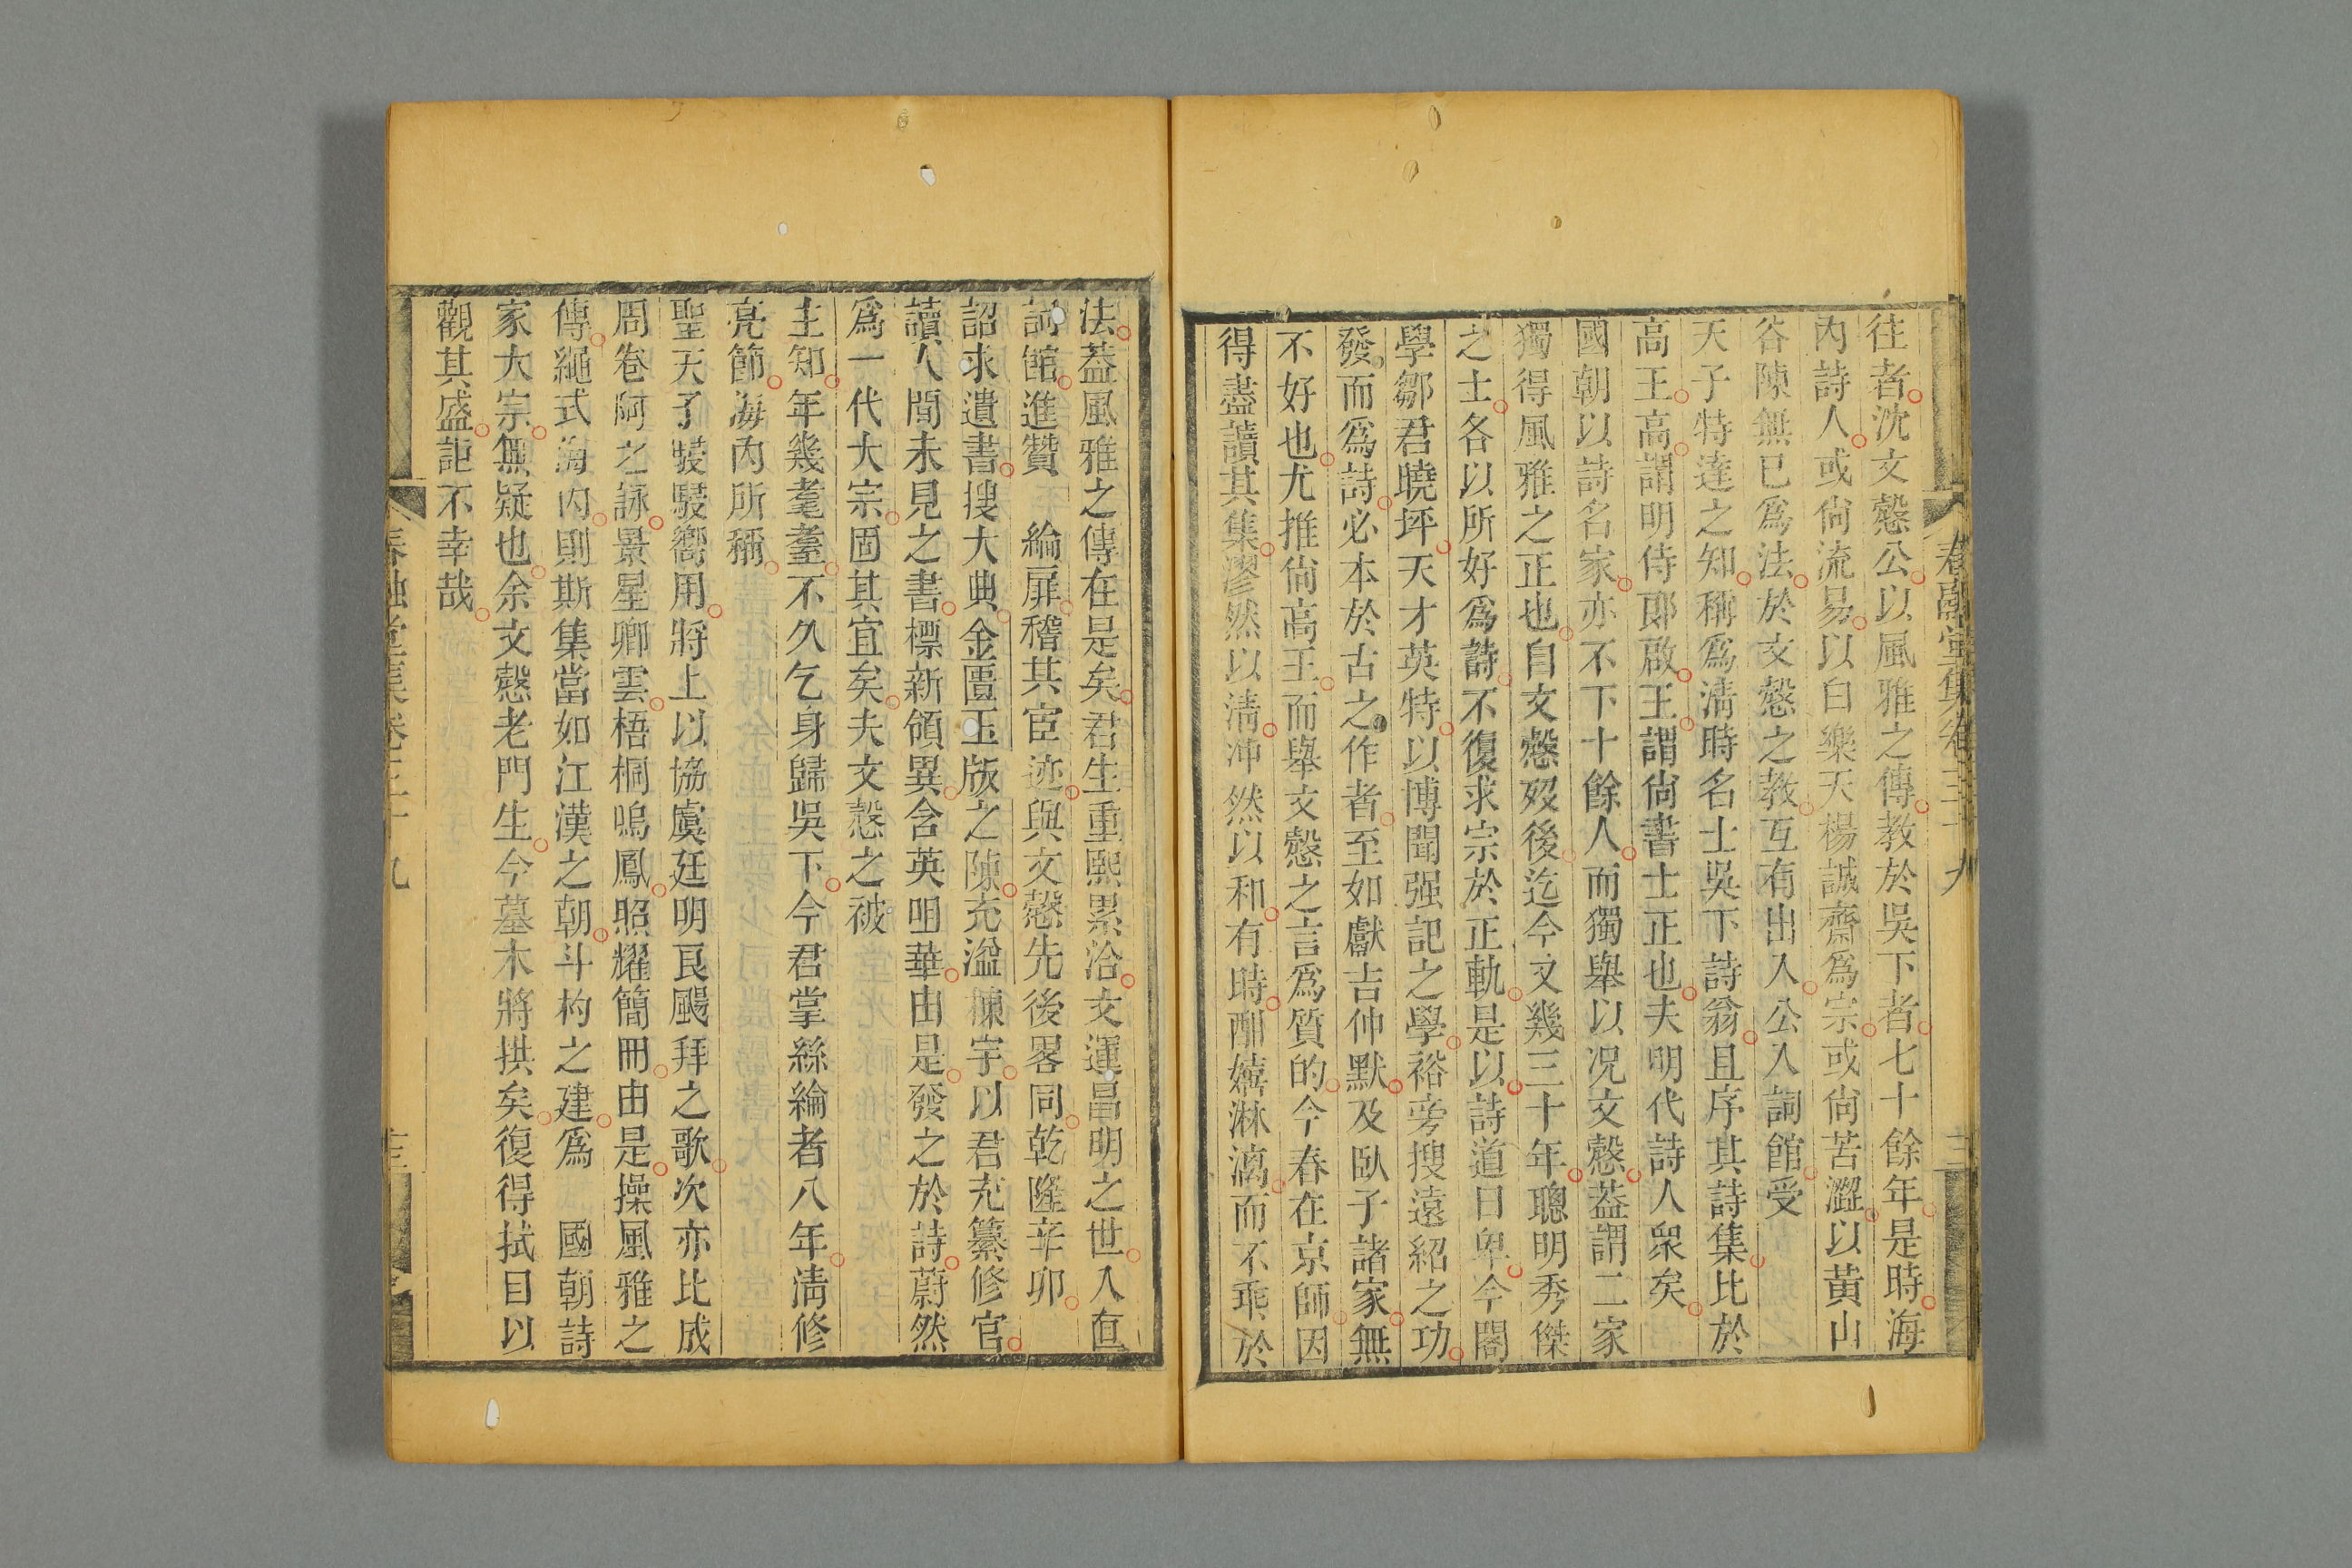 春融堂集卷三十九
三
往者沈文慤公以風雅之傳教於吳下者七十餘年是時海
內詩人或尙流易以白樂天楊誠齋爲宗或尙苦澀以黃山
谷陳無已爲法於文慤之教互有出入公入詞館受
天子特達之知稱爲淸時名士吳下詩翁且序其詩集比於
高王高謂明侍郞啟王謂尙書士正也夫明代詩人衆矣
國朝以詩名家亦不下十餘人而獨舉以况文慤葢謂二家
獨得風雅之正也自文慤歿後迄今又幾三十年聰明秀傑
之士各以所好爲詩不復求宗於正軌是以詩道日卑今閣
學鄒君曉坪天才英特以博聞强記之學裕旁搜遠紹之功
發而爲詩必本於古之作者至如獻吉仲默及臥子諸家無
不好也尤推尙高王而舉文慤之言爲質的今春在京師因
得盡讀其集漻然以淸沖然以和有時酣嬉淋漓而不乖於
法葢風雅之傳在是矣君生重熙累洽文運昌明之世入直
詞館進贊　綸扉稽其宦迹與文慤先後畧同乾隆辛卯
詔求遺書搜大典金匱玉版之陳充溢棟宇以君充纂修官
讀人間未見之書標新領異含英咀華由是發之於詩蔚然
爲一代大宗固其宜矣夫文慤之被
主知年幾耄耋不久乞身歸吳下今君掌絲綸者八年淸修
亮節海內所稱
聖天子駸駸嚮用將上以協虞廷明良颺拜之歌次亦比成
周卷阿之詠景星卿雲梧桐鳴鳳照耀簡冊由是操風雅之
傳繩式海內則斯集當如江漢之朝斗杓之建爲　國朝詩
家大宗無疑也余文慤老門生今墓木將拱矣復得拭目以
觀其盛詎不幸哉
春融堂集卷三十九